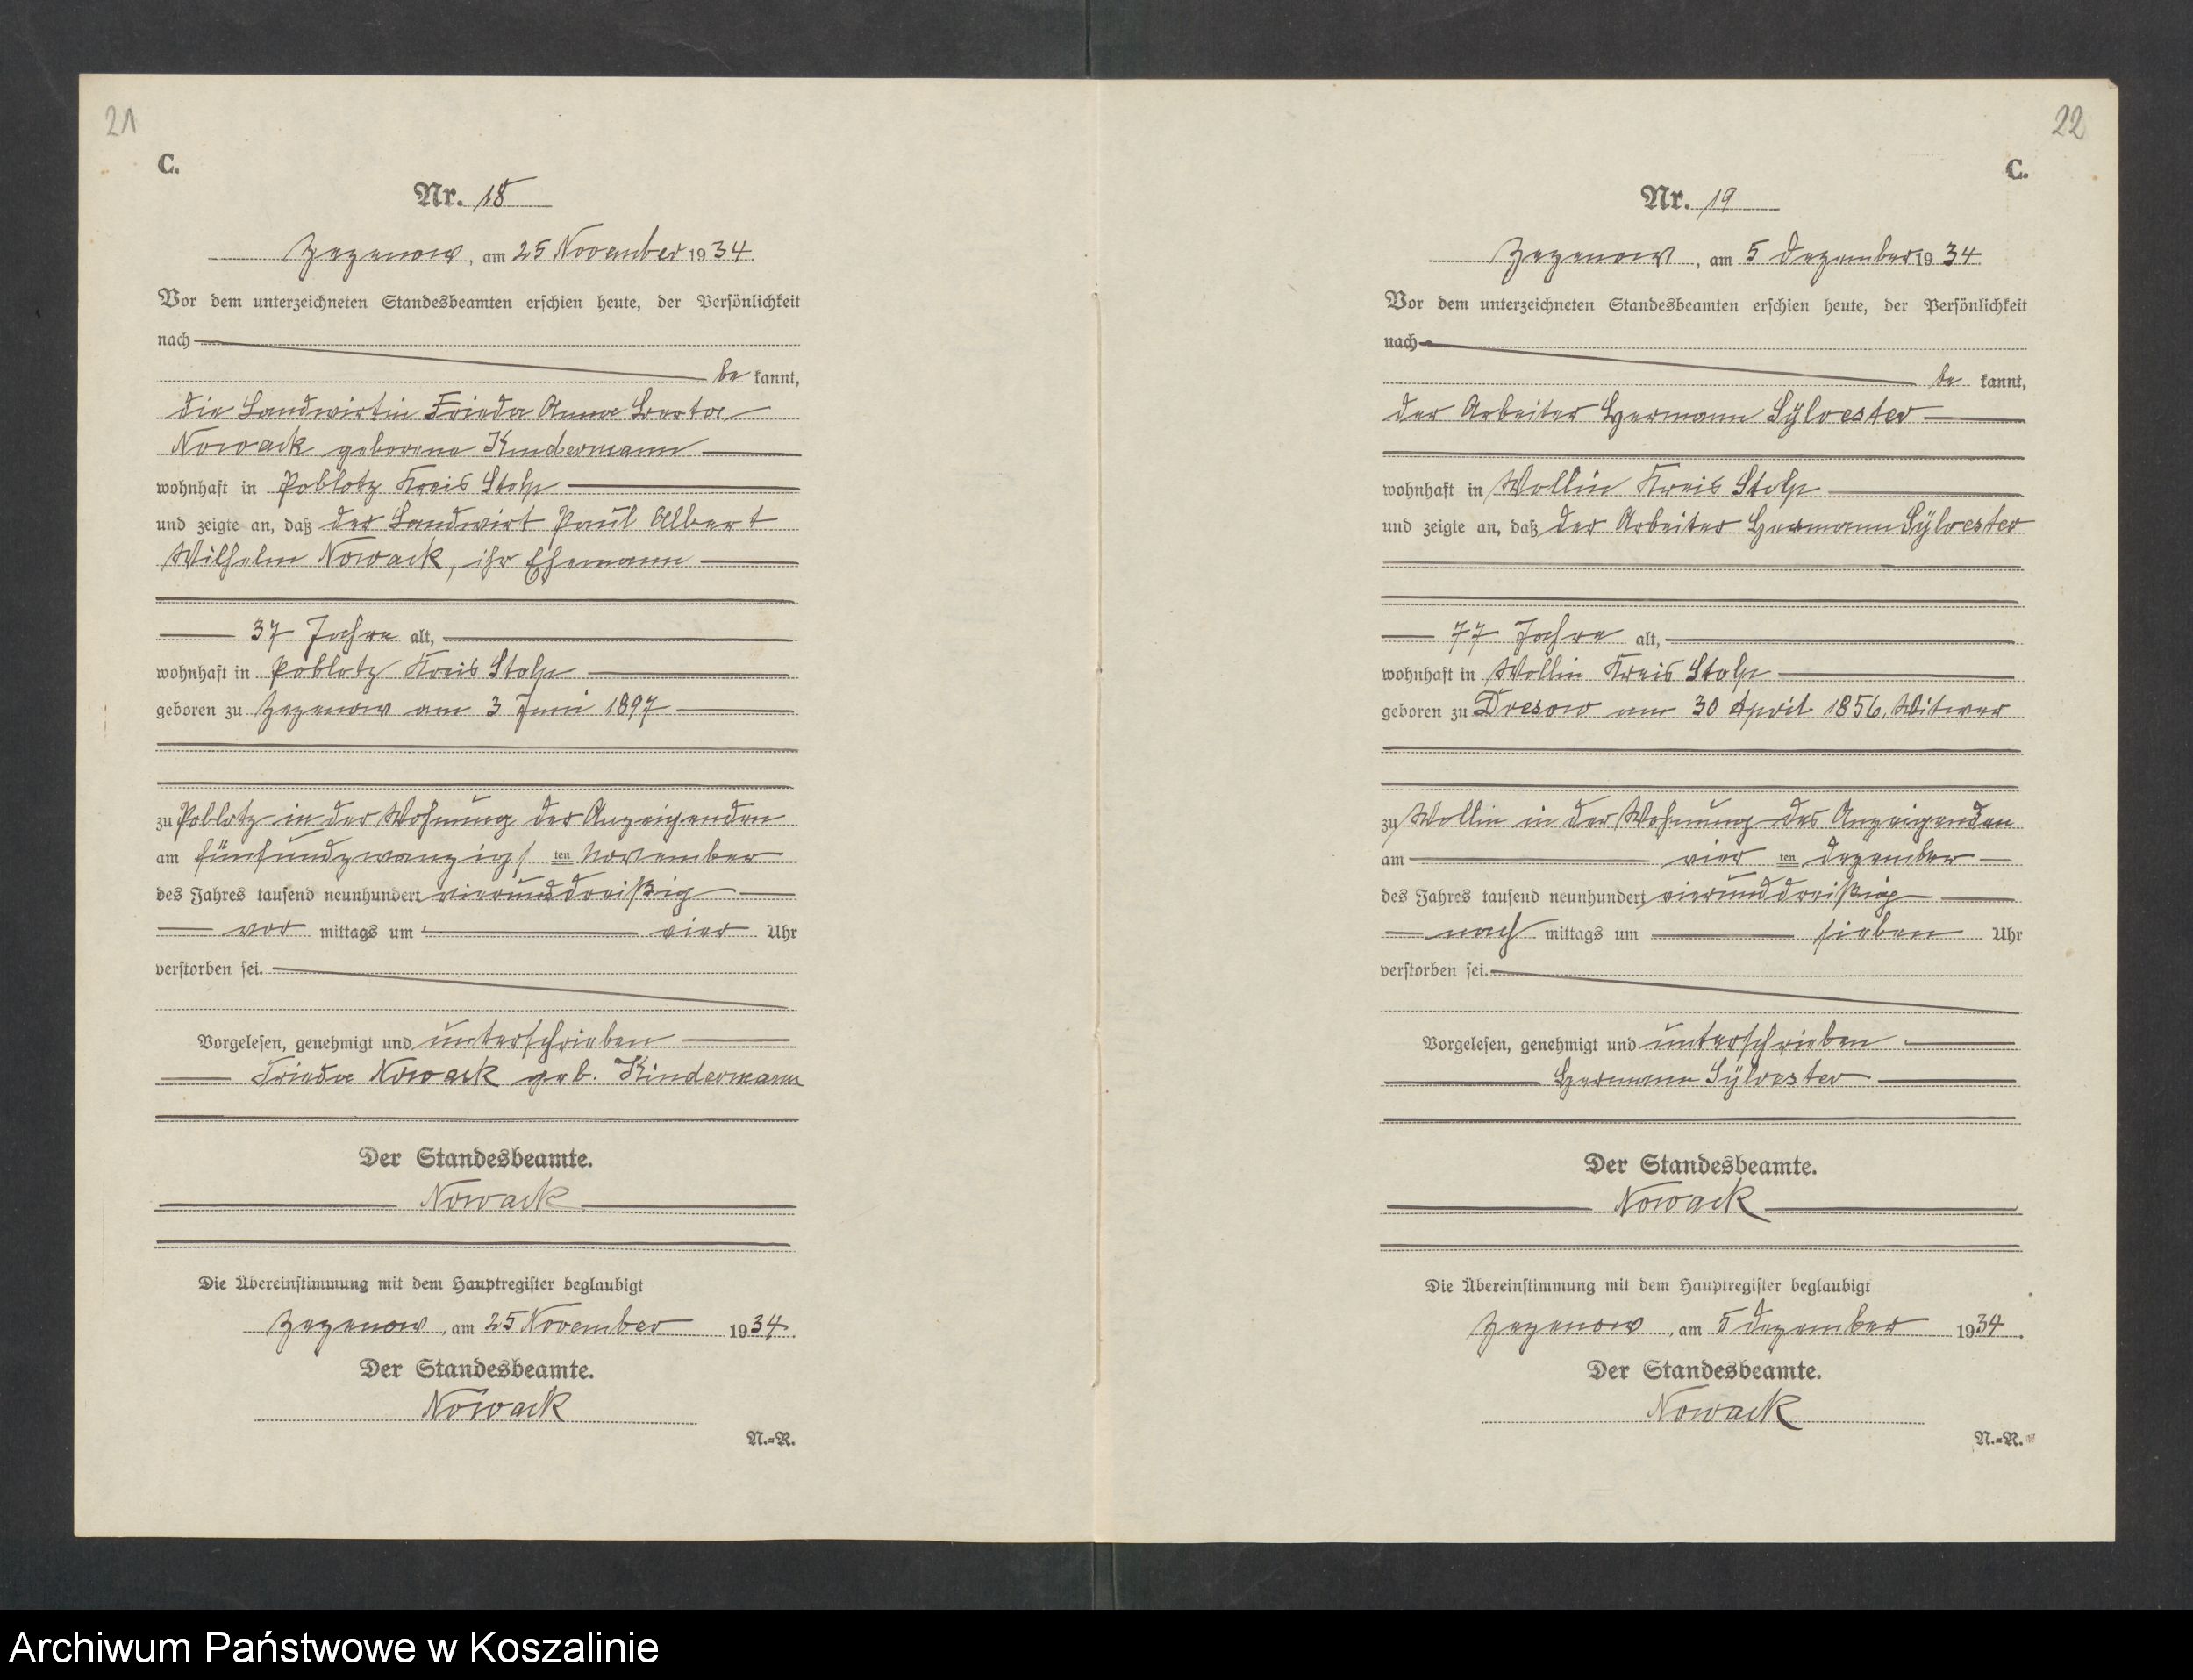 21
C.
Nr. 18
Zezenow, am 25 November 1934
Vor dem unterzeichneten Standesbeamten erschien heute, der Persönlichkeit
nach
be kannt,
die Landwirtin Frieda Anna Berta
Nowack geborene Kindermann
wohnhaft in Poblotz Kreis Stolp
und zeigte an, daß der Landwirt Paul Albert
Wilhelm Nowack, ihr Ehemann
37 Jahre alt,
wohnhaft in Poblotz Kreis Stolp
geboren zu Zezenow am 3 Juni 1897
zu Poblotz in der Wohnung der Anzeigenden
am fünfundzwanzigsten November
des Jahres tausend neunhundert vierunddreißig
vor mittags um vier Uhr
verstorben sei.
Vorgelesen, genehmigt und unterschrieben
Frieda Nowack geb. Kindermann
Der Standesbeamte.
Nowack
Die Übereinstimmung mit dem Hauptregister beglaubigt
Zezenow, am 25 November 1934.
Der Standesbeamte.
Nowack
N.=R.
22
C.
Nr. 19
Zezenow, am 5 Dezember 1934
Vor dem unterzeichneten Standesbeamten erschien heute, der Persönlichkeit
nach
be kannt,
der Arbeiter Hermann Sylvester
wohnhaft in Wollin Kreis Stolp
und zeigte an, daß der Arbeiter Hermann Sylvester
77 Jahre alt,
wohnhaft in Wollin Kreis Stolp
geboren zu Dresow am 30 April 1856, Witwer
zu Wollin in der Wohnung des Anzeigenden
am vier ten Dezember
des Jahres tausend neunhundert vierunddreißig
nach mittags um sieben Uhr
verstorben sei.
Vorgelesen, genehmigt und unterschrieben
Hermann Sylvester
Der Standesbeamte.
Nowack
Die Übereinstimmung mit dem Hauptregister beglaubigt
Zezenow, am 5 Dezember 1934.
Der Standesbeamte.
Nowack
N.=R.
Archiwum Państwowe w Koszalinie